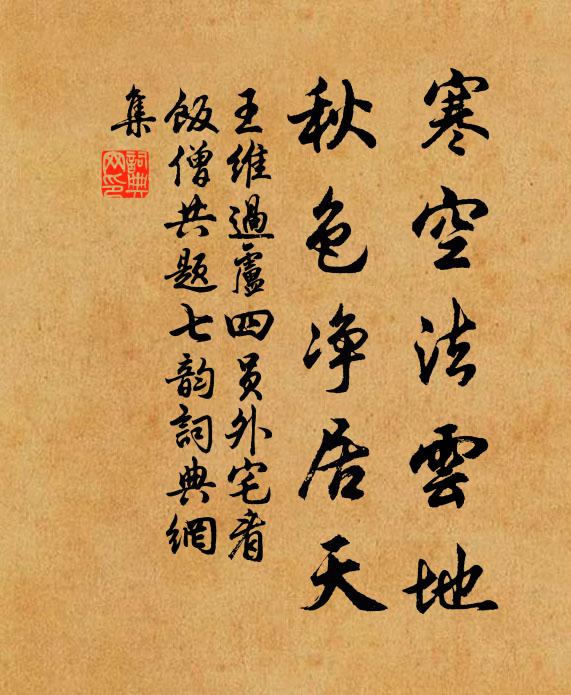 寒空法雲地
秋色净居天
王維過盧四員外宅看
飯僧共題七韵詞典網
集
詞典
网印